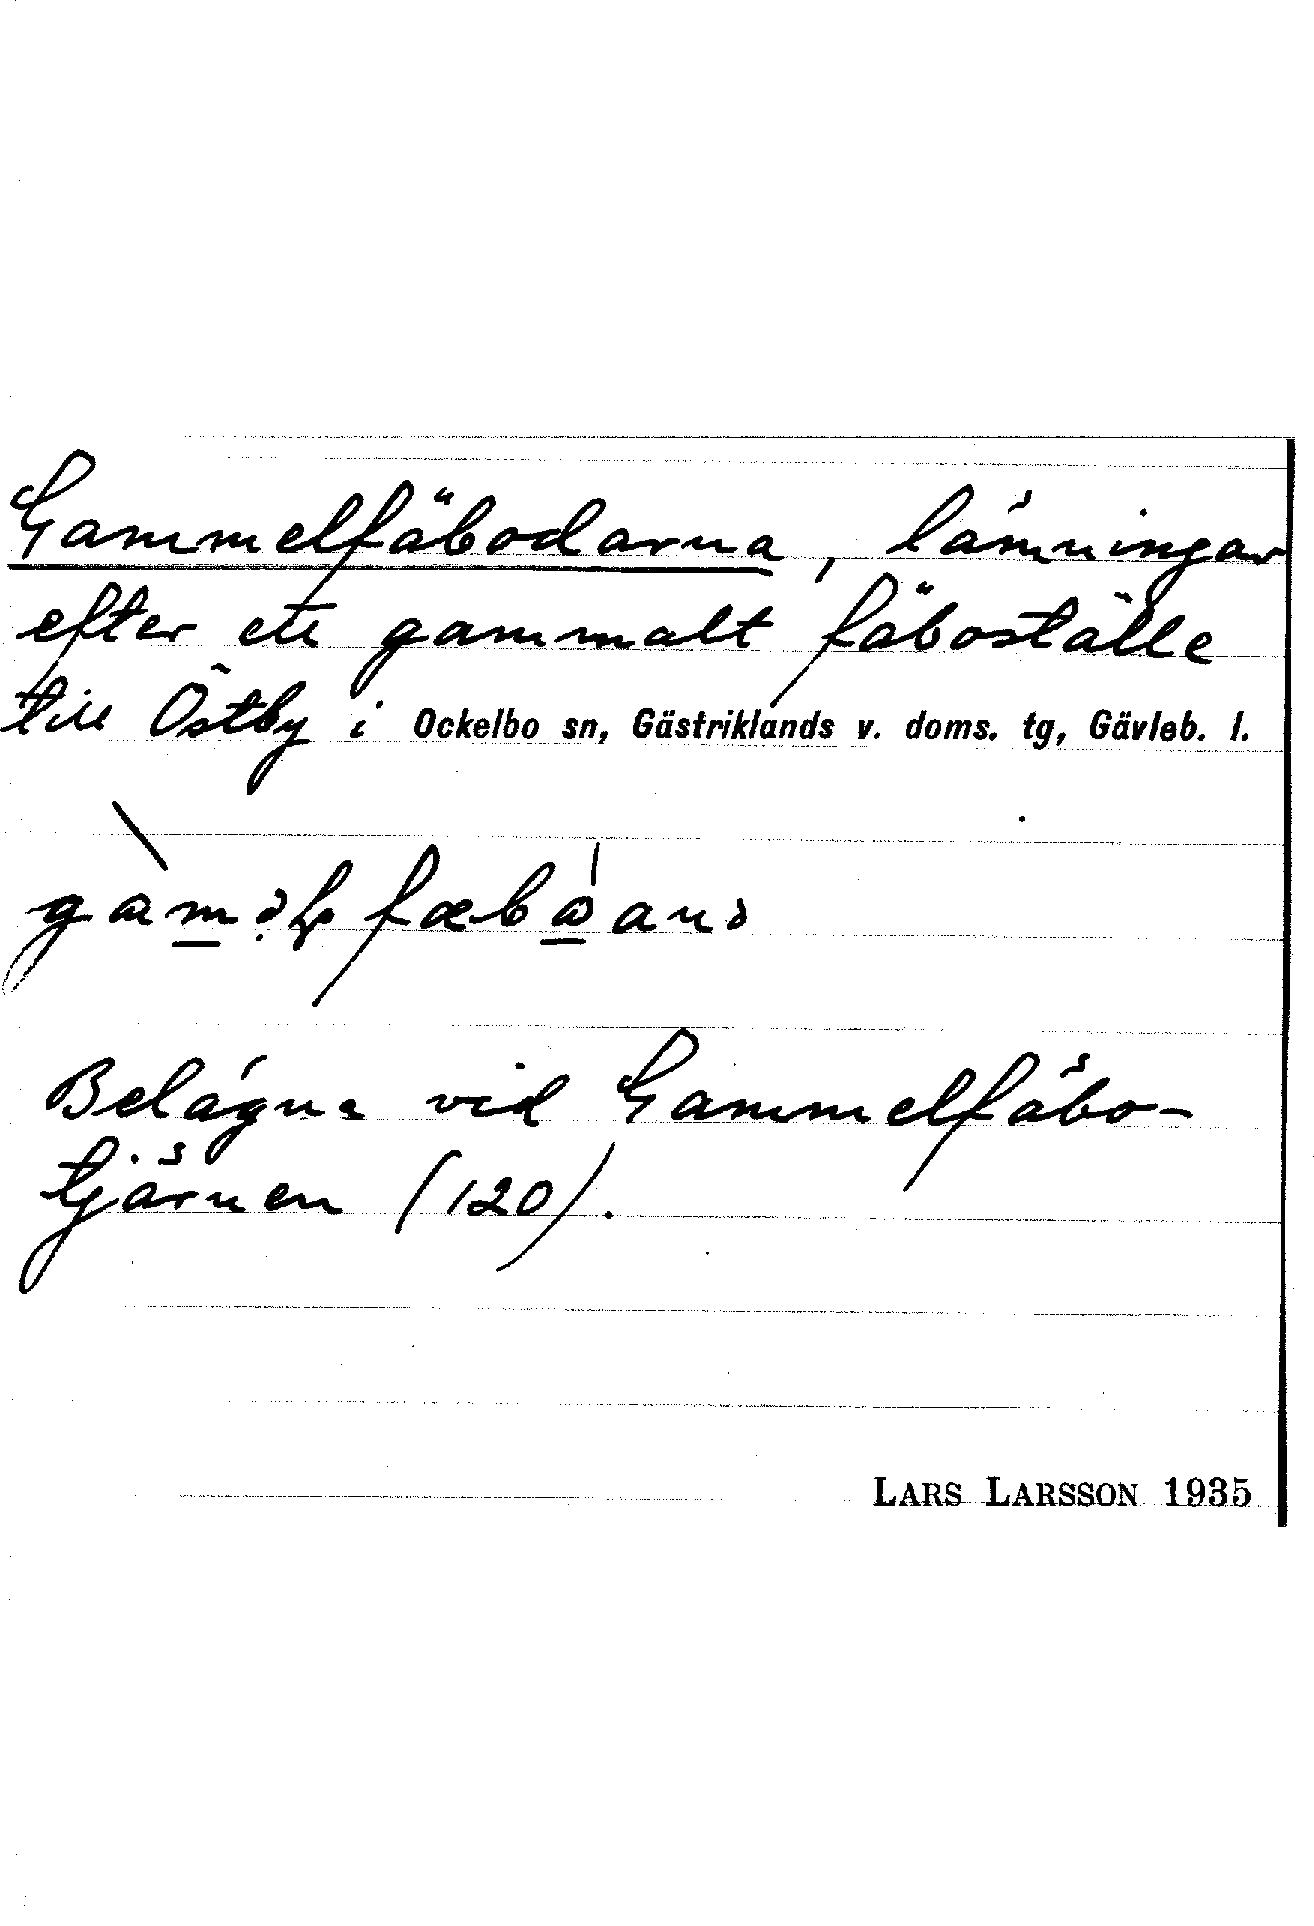 Gammelfäbodarna, lämningar
efter ett gammalt fäboställe
till Östby i Ockelbo sn, Gästriklands v. doms. tg, Gävleb. l.
Belägna vid Gammelfäbo-
tjärnen (120).
LARS LARSSON 1935